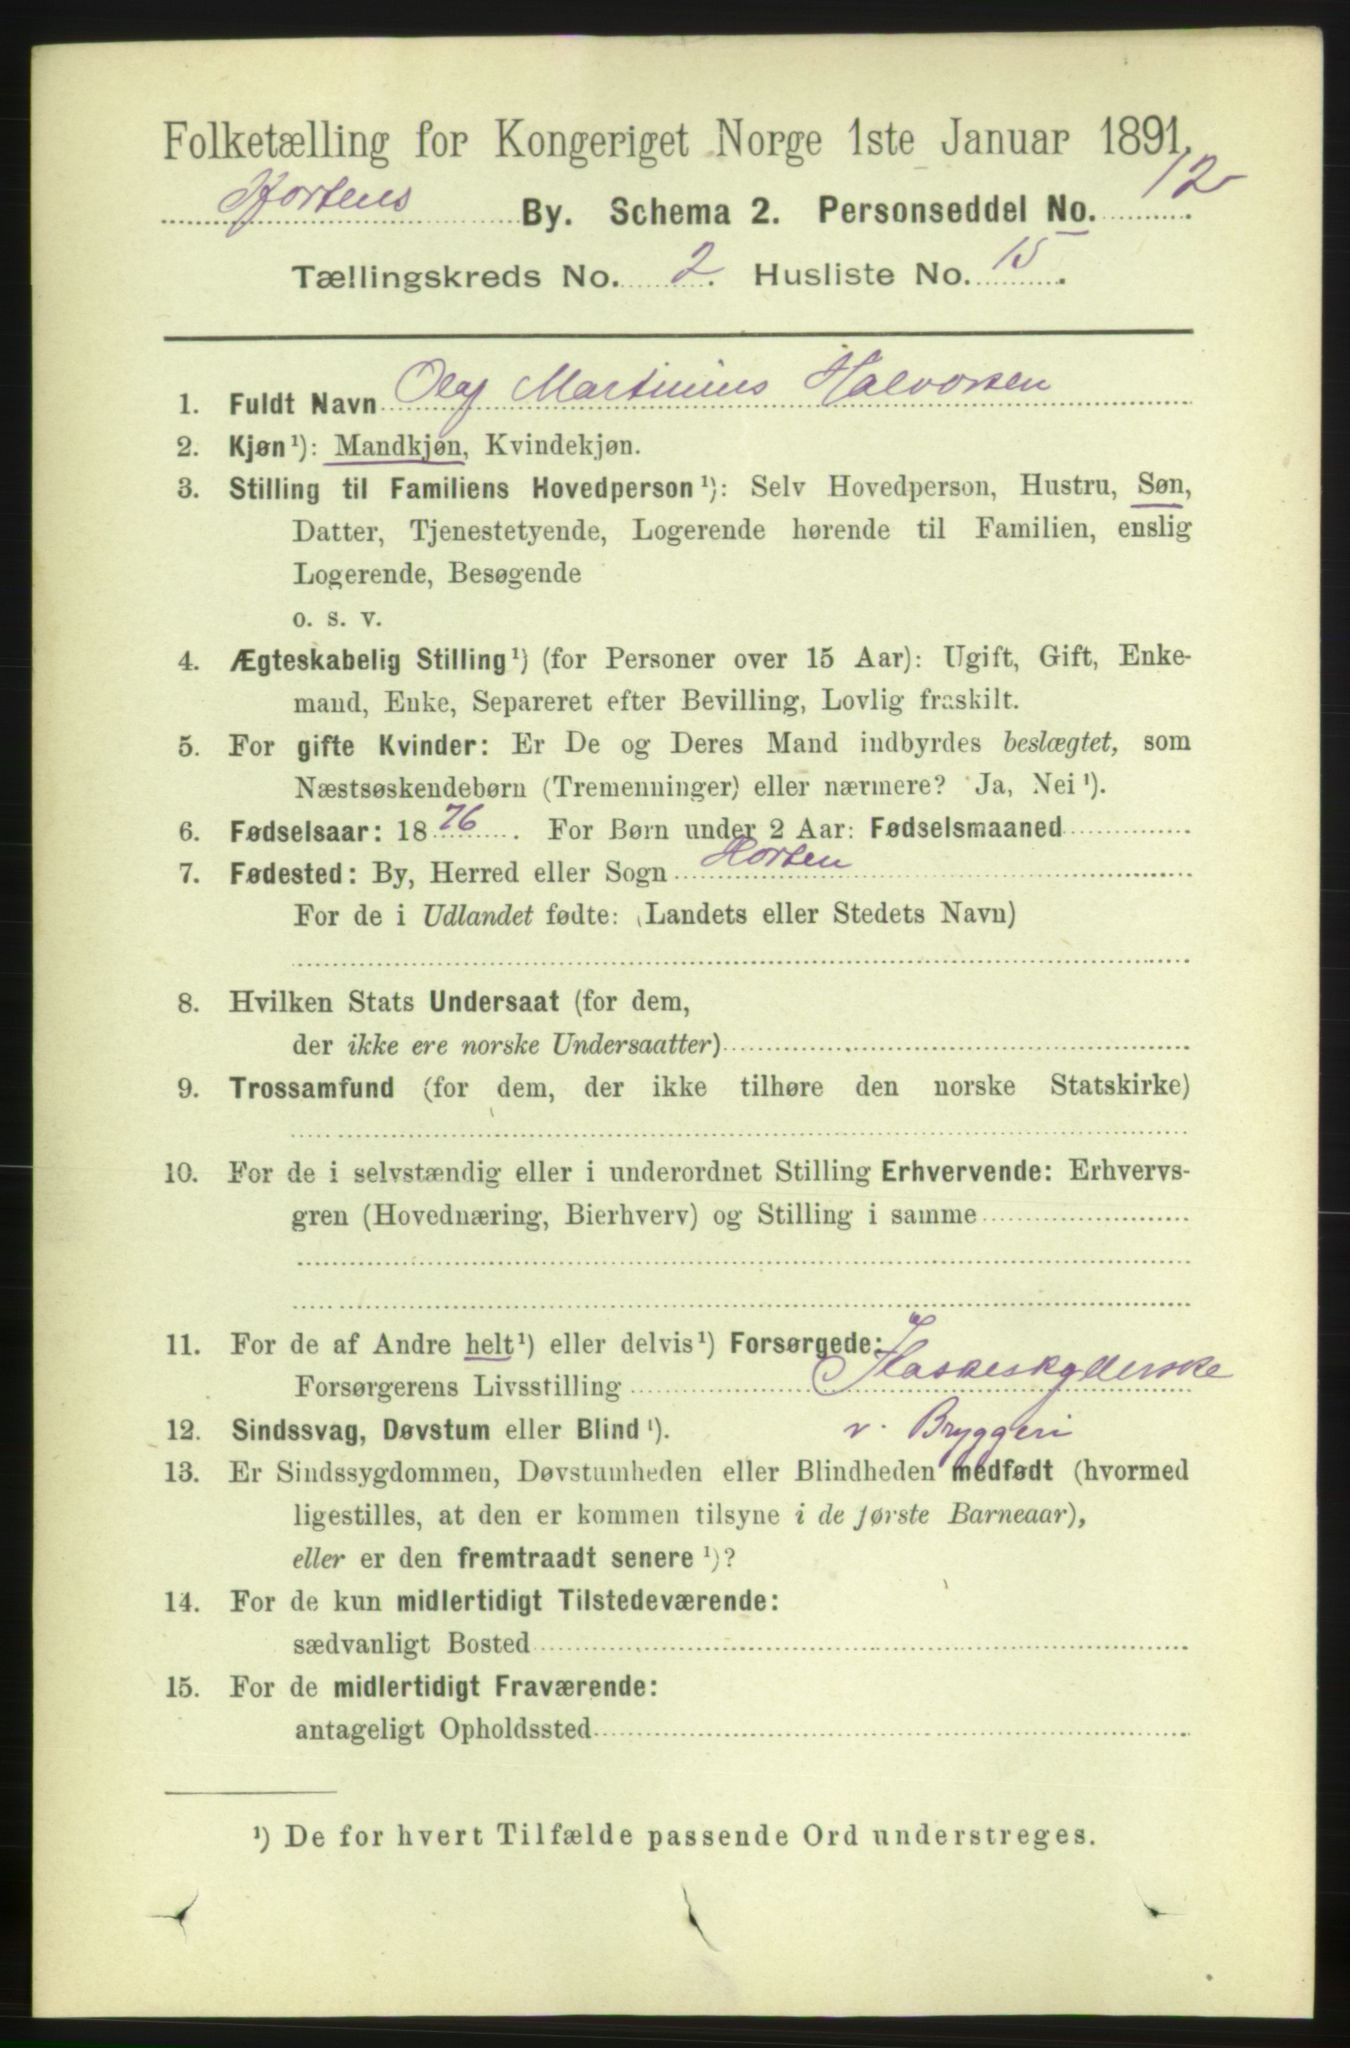 Folketælling for Kongeriget Norge 1ste Januar 1891.
Hortens By. Schema 2. Personseddel No. 12.
Tællingskreds No. 2. Husliste No. 15.
1. Fuldt Navn Olaf Martinius Halvorsen
2. Kjøn¹): Mandkjøn, Kvindekjøn.
3. Stilling til Familiens Hovedperson¹): Selv Hovedperson, Hustru, Søn,
Datter, Tjenestetyende, Logerende hørende til Familien, enslig
Logerende, Besøgende
o. s. v.
4. Ægteskabelig Stilling¹) (for Personer over 15 Aar): Ugift, Gift, Enke-
mand, Enke, Separeret efter Bevilling, Lovlig fraskilt.
5. For gifte Kvinder: Er De og Deres Mand indbyrdes beslægtet, som
Næstsøskendebørn (Tremenninger) eller nærmere? Ja, Nei¹).
6. Fødselsaar: 1876. For Børn under 2 Aar: Fødselsmaaned
7. Fødested: By, Herred eller Sogn Horten
For de i Udlandet fødte: (Landets eller Stedets Navn)
8. Hvilken Stats Undersaat (for dem,
der ikke ere norske Undersaatter)
9. Trossamfund (for dem, der ikke tilhøre den norske Statskirke)
10. For de i selvstændig eller i underordnet Stilling Erhvervende: Erhvervs-
gren (Hovednæring, Bierhverv) og Stilling i samme
11. For de af Andre helt¹) eller delvis¹) Forsørgede:
Forsørgerens Livsstilling Flaskeskyllerske
v. Bryggeri
12. Sindssvag, Døvstum eller Blind¹).
13. Er Sindssygdommen, Døvstumheden eller Blindheden medfødt (hvormed
ligestilles, at den er kommen tilsyne i de første Barneaar),
eller er den fremtraadt senere¹)?
14. For de kun midlertidigt Tilstedeværende:
sædvanligt Bosted
15. For de midlertidigt Fraværende:
antageligt Opholdssted
¹) De for hvert Tilfælde passende Ord understreges.